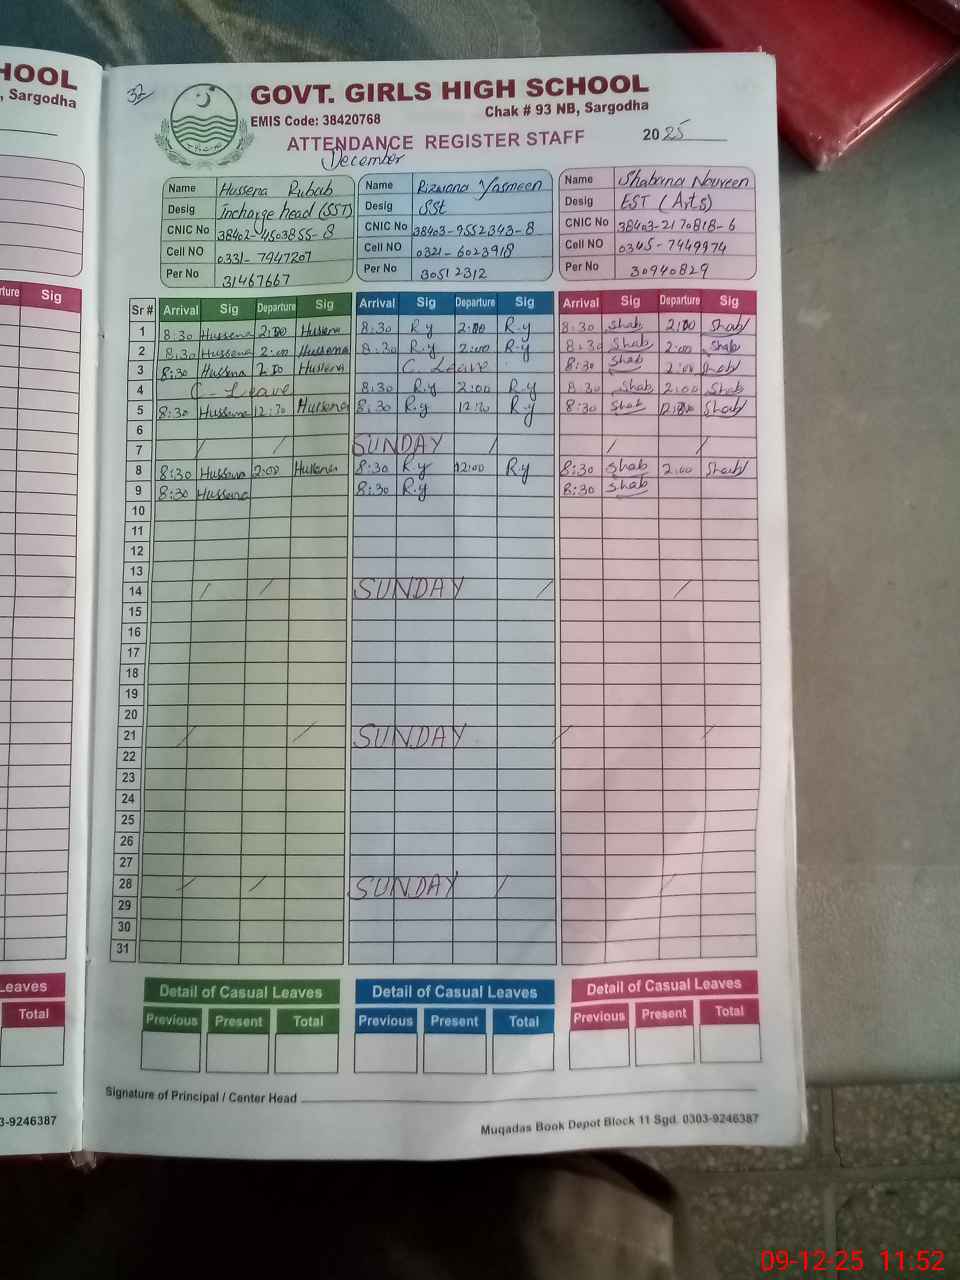 HOOL
, Sargodha
32
GOVT. GIRLS HIGH SCHOOL
EMIS Code: 38420768 Chak # 93 NB, Sargodha
ATTENDANCE REGISTER STAFF 2025
December
Name Hussena Rubab
Desig Incharge head (SST)
CNIC No 38402-4503855-8
Cell NO 0331-7947207
Per No 31467667
Name Rizwana Yasmeen
Desig SSt
CNIC No 38403-9552343-8
Cell NO 0321-6023918
Per No 30512312
Name Shabana Nourveen
Desig EST (Arts)
CNIC No 38403-2170818-6
Cell NO 0345-7449974
Per No 30940829
ture Sig
Sr # Arrival Sig Departure Sig Arrival Sig Departure Sig Arrival Sig Departure Sig
1 8:30 Hussena 2:00 Hussena 8:30 R.y 2:00 R.y 8:30 Shab 2:00 Shab
2 8:30 Hussena 2:00 Hussena 8:30 R.y 2:00 R.y 8:30 Shab 2:00 Shab
3 8:30 Hussena 2:00 Hussena C. Leave 8:30 Shab 2:00 Shab
4 C- Leave 8:30 R.y 2:00 R.y 8:30 Shab 2:00 Shab
5 8:30 Hussena 12:30 Hussena 8:30 R.y 12:30 R.y 8:30 Shab Shab
6
7 / / SUNDAY / / /
8 8:30 Hussena 2:00 Hussena 8:30 R.y 12:00 R.y 8:30 Shab 2:00 Shab
9 8:30 Hussena 8:30 R.y 8:30 Shab
10
11
12
13
14 / / SUNDAY / /
15
16
17
18
19
20
21 / / SUNDAY / /
22
23
24
25
26
27
28 / / SUNDAY / /
29
30
31
Leaves
Total
Detail of Casual Leaves Detail of Casual Leaves Detail of Casual Leaves
Previous Present Total Previous Present Total Previous Present Total
Signature of Principal / Center Head
3-9246387
Muqadas Book Depot Block 11 Sgd. 0303-9246387
09-12-25 11:52